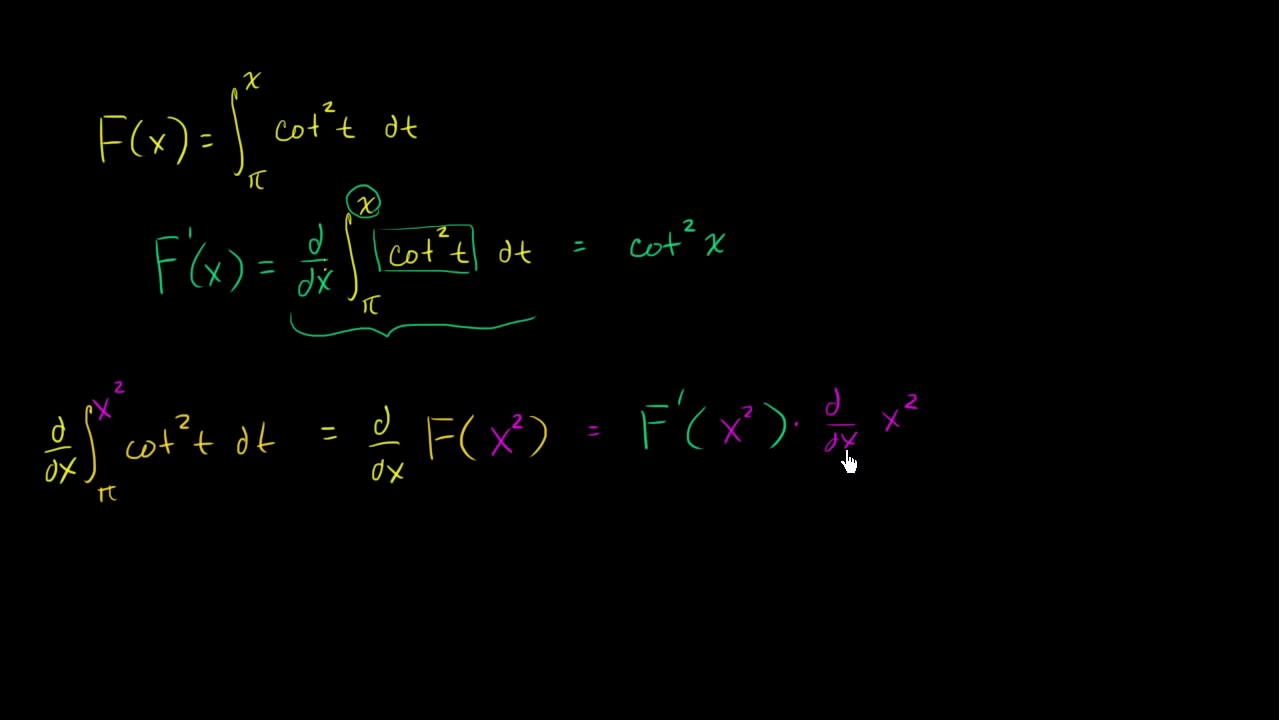 F(x) = ∫_π^x cot² t dt
F'(x) = d/dx ∫_π^x cot² t dt = cot² x
d/dx ∫_π^{x²} cot² t dt = d/dx F(x²) = F'(x²) · d/dx x²